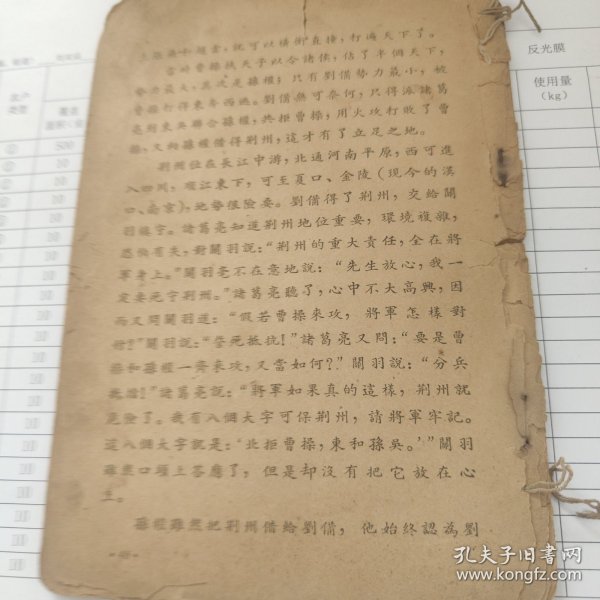 上張飛和趙雲，就可以橫衝直撞，打遍天下了。
當時曹操挾天子以令諸侯，佔了半個天下，
勢力最大，其次是孫權；只有劉備勢力最小，被
曹操打得東奔西逃。劉備無可奈何，只得派諸葛
亮到東吳聯合孫權，共拒曹操，用火攻打敗了曹
操，又向孫權借得荆州，這才有了立足之地。
荆州位在長江中游，北通河南平原，西可進
入四川，順江東下，可至夏口、金陵（現今的漢
口、南京），地勢很險要。劉備得了荆州，交給關
羽鎮守。諸葛亮知道荆州地位重要，環境複雜，
恐怕有失，對關羽說：“荆州的重大責任，全在將
軍身上。”關羽毫不在意地說：“先生放心，我一
定要死守荆州。”諸葛亮聽了，心中不大高興，因
而又問關羽道：“假若曹操來攻，將軍怎樣對
付？”關羽說：“誓死抵抗！”諸葛亮又問：“要是曹
操和孫權一齊來攻，又當如何？”關羽說：“分兵
抵擋！”諸葛亮說：“將軍如果真的這樣，荆州就
危險了。我有八個大字可保荆州，請將軍牢記。
這八個大字就是：‘北拒曹操，東和孫吳。’”關羽
雖然口頭上答應了，但是却沒有把它放在心
上。
孫權雖然把荆州借給劉備，他始終認為劉
反光膜
使用量
（kg）
500
10
10
10
孔夫子旧书网
www.kongfz.com